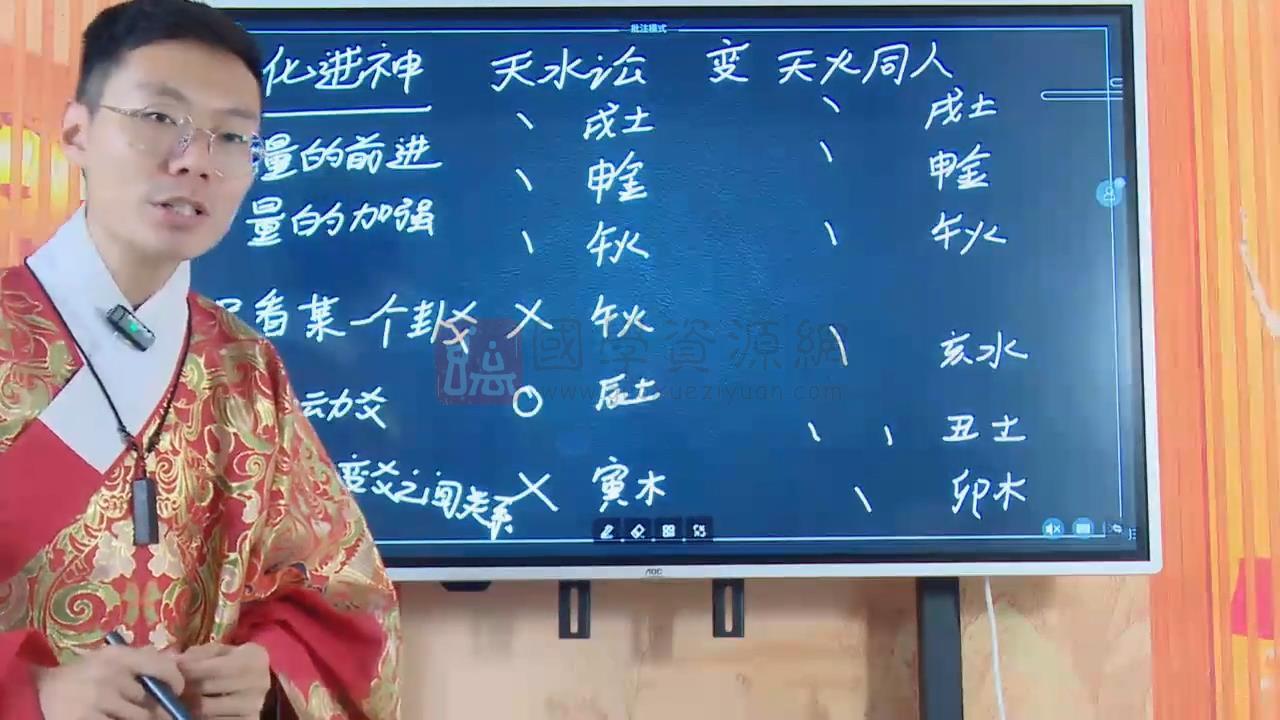 批注模式
化进神 天水讼 变 天火同人
量的前进
量的加强
看某一个卦爻
动爻
变爻之间关系
戌土 戌土
申金 申金
午火 午火
午火 亥水
辰土 丑土
寅木 卯木
國學資源網
AOC